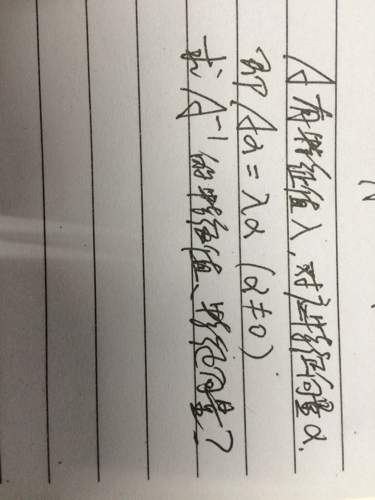 A有特征值λ,对应特征向量α.
即Aα=λα(α≠0)
求A⁻¹的特征值、特征向量?